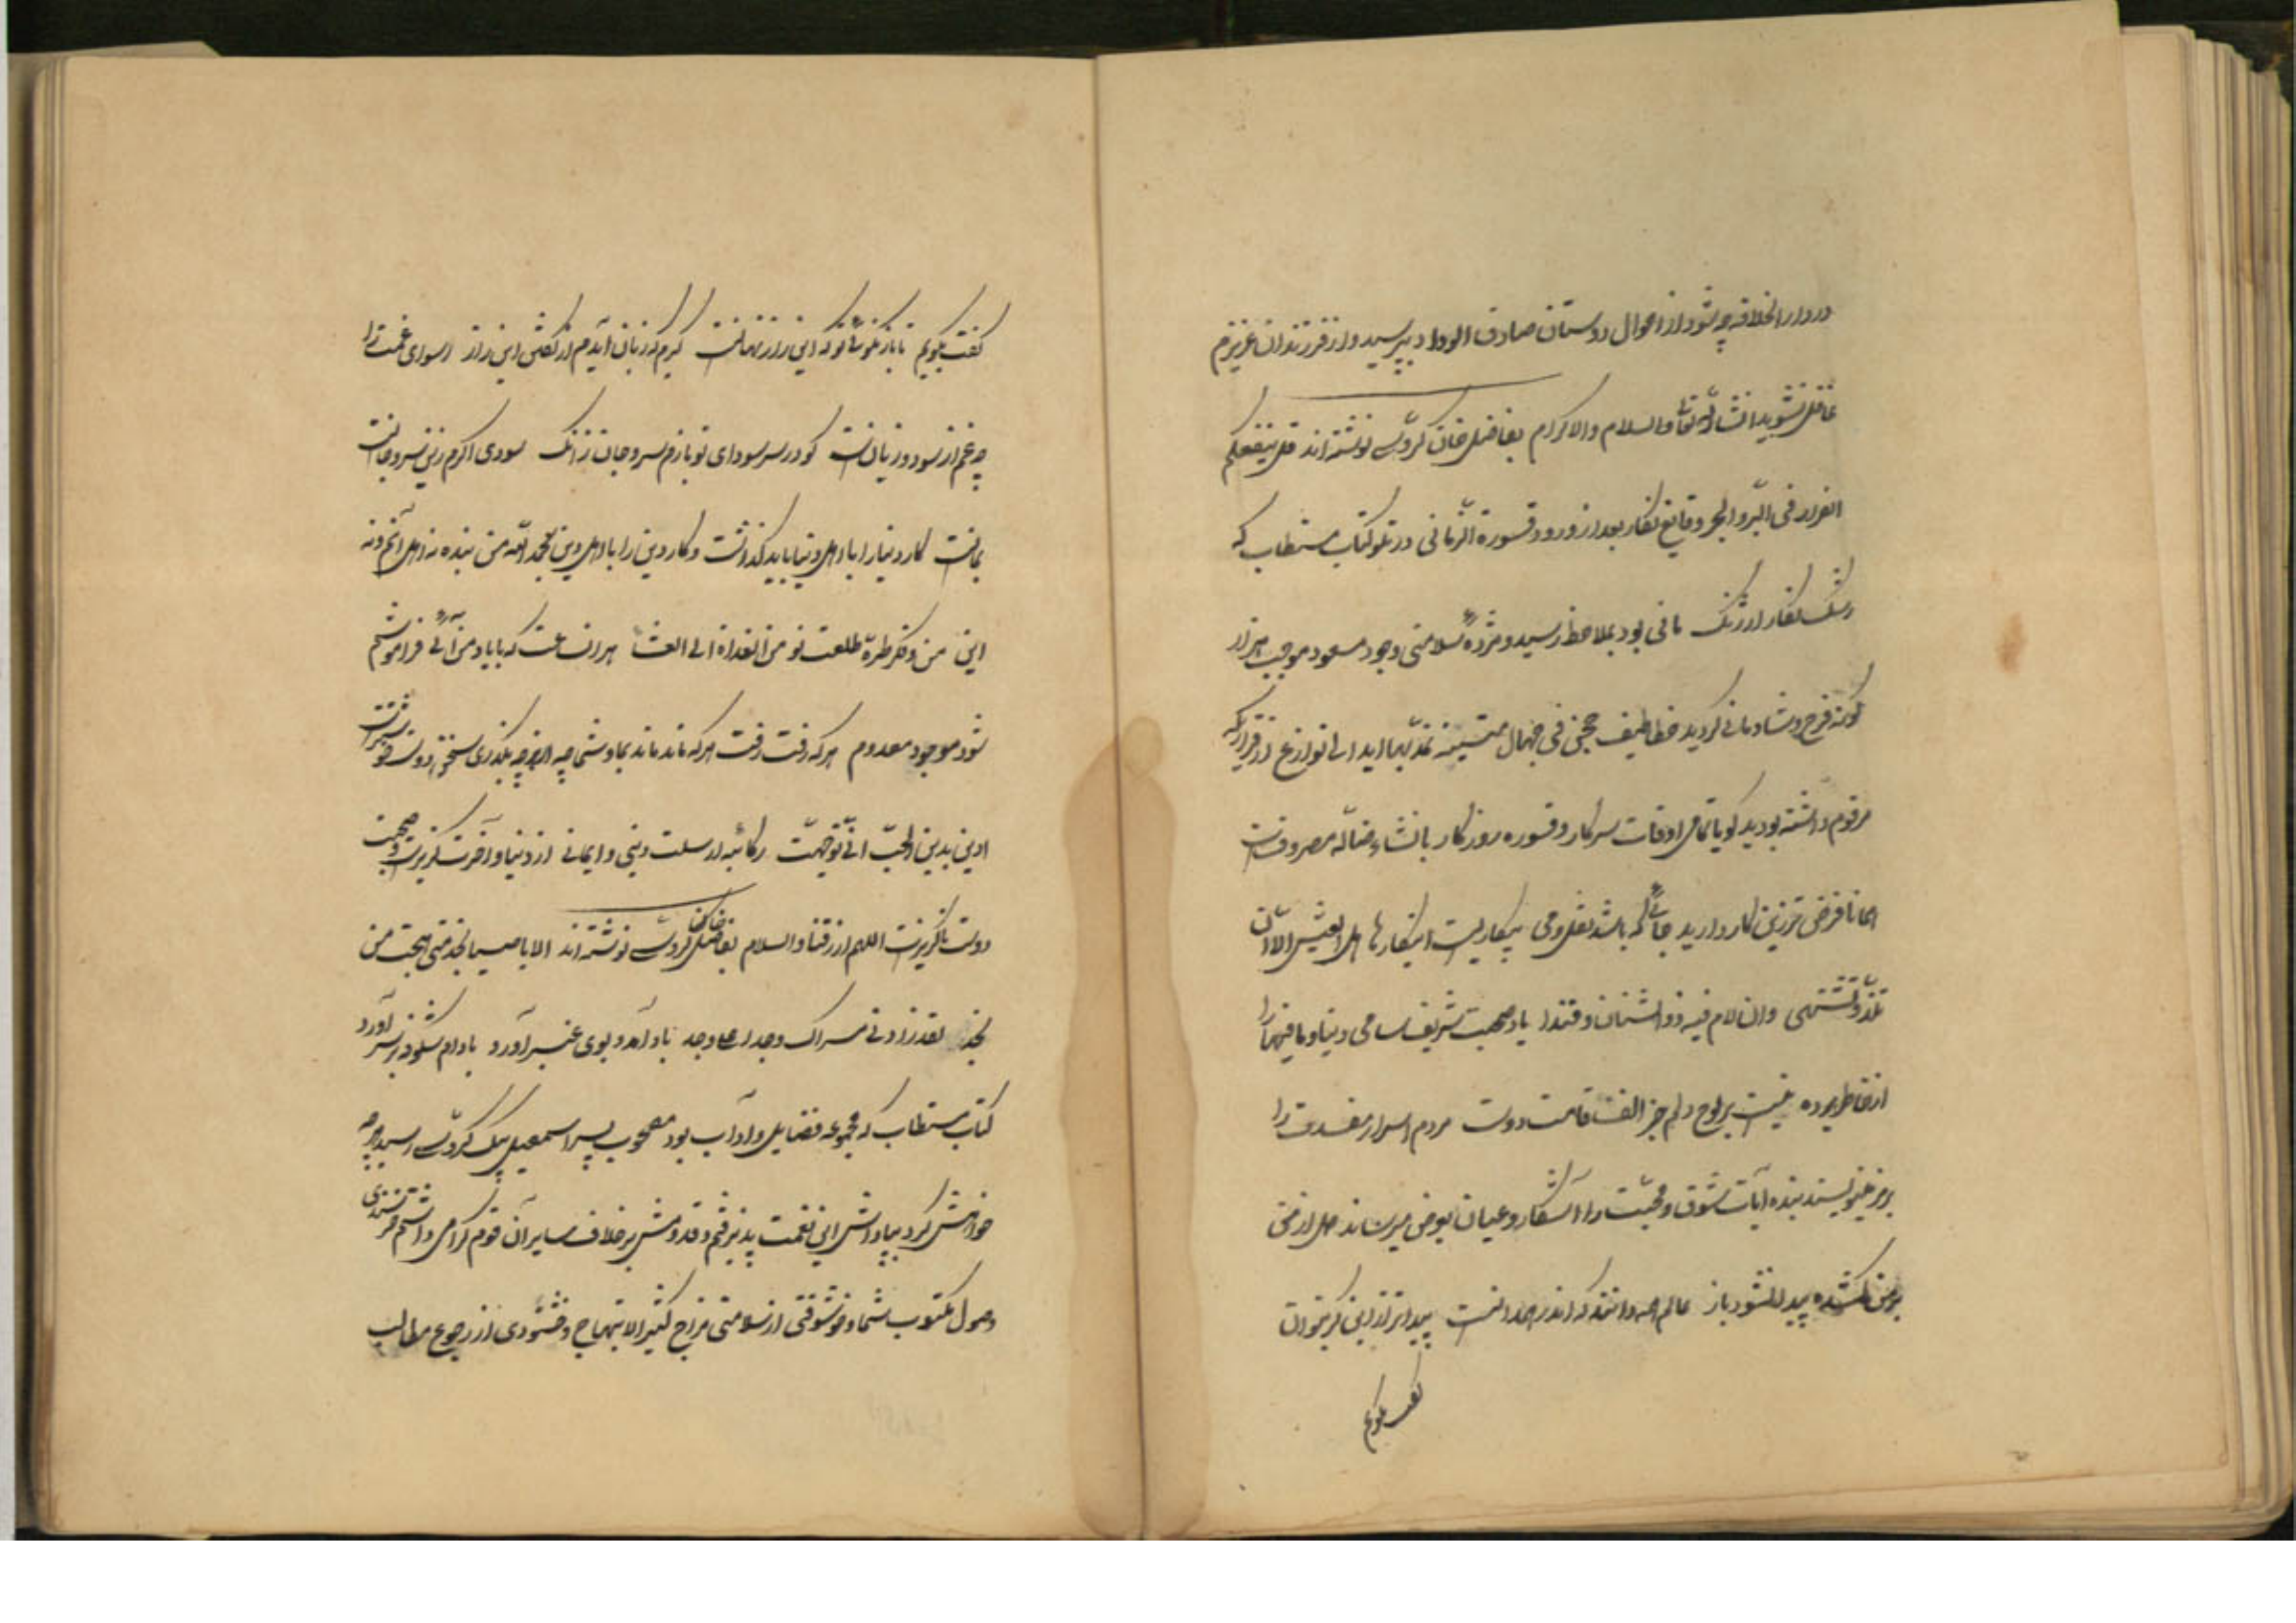 در دار الخلافه چه شود از احوال دوستان صادق الوداد بپرسید و از فرزندان عزیزم
غافل نشوید انشاء الله تعالی والسلام والاکرام بفاضل خان گروسی نوشته اند قل لن ینفعکم
الفرار فی البر و البحر وقایع نگار بعد از ورود قسورة الزمانی در تلو کتاب مستطاب که
رشک نگار ارژنگ مانی بود بملاحظه رسید و مژده سلامتی وجود مسعود موجب هزار
گونه فرح و شادمانی گردید خطاطیف حجن فی حبال متینة تمد بها اید الی نوازع از قراریکه
مرقوم داشته بودید گویا تمامی اوقات سرکار و قسوره روزگار بانشاء مصروفست
همانا فرض ترین کار دارید جائی که باشد بیکاریست اینکارها هل العیش الا ان
تلذ و تشتهی وان لام فیه ذو الشنان و فندا یاد صحبت شریف سامی دنیا و ما فیها را
از خاطر برده نیست بر لوح دلم جز الف قامت دوست مردم اسرار را
برمز مینویسند بنده آیات شوق و محبت را آشکار و عیان بعرض میرساند
بر من پیدا نشود باز عالم همه دانند که اندر همدانست پیداتر از این گر بتوان
گفت بگویم
گفت بگویم تا باز نگوئی تو که این راز نهانست گیرم که زبان آیدم از گفتن این راز رسوای غمت را
چه غم از سود و زیانست گو در سر سودای تو بازم سر و جان زانک سودی اگرم زین سر و جانست
همانست کار دنیا را با اهل دنیا باید گذاشت و کار دین را با اهل دین بحمد الله من بنده نه اهل آنم و نه
این من و فکر طره طلعت تو من الغداة الی العشا هر آن ساعت که با یاد من آئی فراموشم
شود موجود و معدوم هر که رفت رفت هر که ماند ماند بما و شما چه از هر چه بگذری سخن دوست خوشتر است
ادین بدین الحب انی توجهت رکائبه ارسلت دینی و ایمانی از دنیا و آخرت گزیر است و صحبت
دوست ناگزیر است اللهم ارزقنا والسلام بفاضلخان گروسی نوشته اند الا یا صبا نجد متی هجت من
نجد لقد زادنی مسراک وجدا علی وجد باد آمد و بوی عنبر آورد بادام شکوفه بر سر آورد
کتاب مستطاب که مجموعه فضایل و آداب بود مصحوب پسر اسمعیل بیک گروسی رسید هر چه
خواهش کرد بپاداش این نعمت پذیرفتم و قدومش بر خلاف سایر آن قوم گرامی داشتم
وصول مکتوب شما و خوشوقتی از سلامتی مزاج کثیر الابتهاج و خشنودی از رجوع مطالب